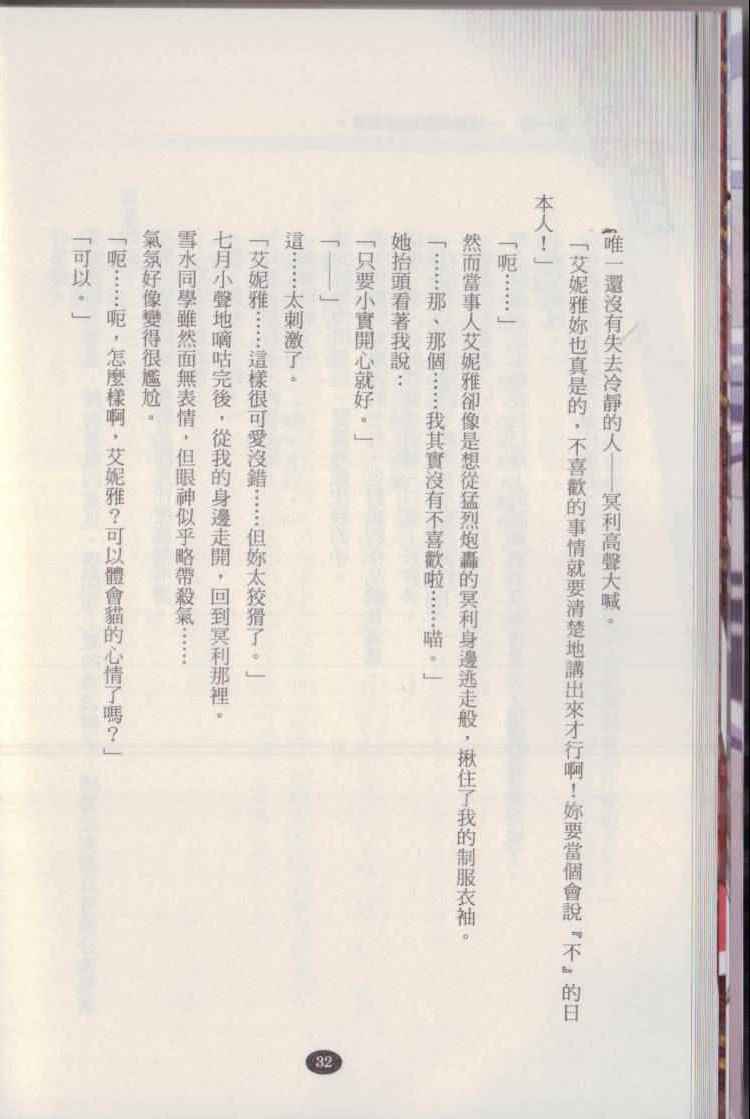 唯一還沒有失去冷靜的人——冥利高聲大喊。
「艾妮雅妳也真是的，不喜歡的事情就要清楚地講出來才行啊！妳要當個會說『不』的日
本人！」
「呃……」
然而當事人艾妮雅卻像是想從猛烈炮轟的冥利身邊逃走般，揪住了我的制服衣袖。
「……那、那個……我其實沒有不喜歡啦……喵。」
她抬頭看著我說：
「只要小實開心就好。」
「——」
這……太刺激了。
「艾妮雅……這樣很可愛沒錯……但妳太狡猾了。」
七月小聲地嘀咕完後，從我的身邊走開，回到冥利那裡。
雪水同學雖然面無表情，但眼神似乎略帶殺氣……
氣氛好像變得很尷尬。
「呃……呃，怎麼樣啊，艾妮雅？可以體會貓的心情了嗎？」
「可以。」
32